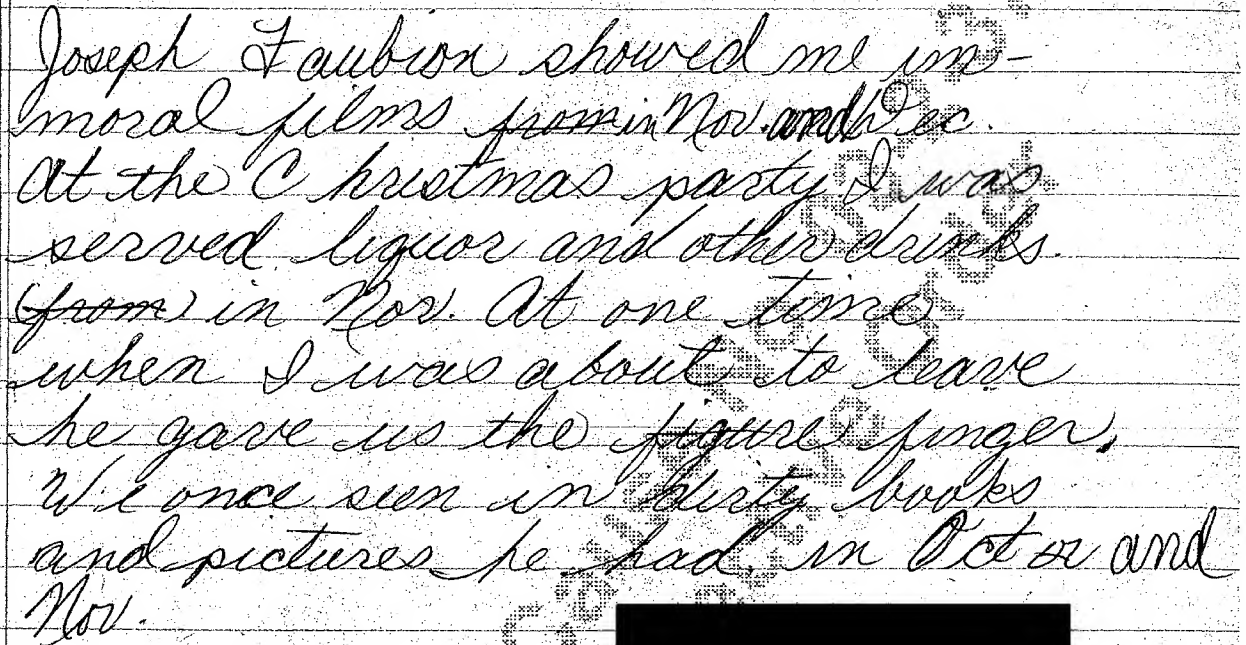 Joseph Faubion showed me im-
moral films from in Nov. and Dec.
At the Christmas party I was
served liquor and other drinks.
(from) in Nov. At one time
when I was about to leave
he gave us the figure finger.
We once seen in dirty books
and pictures he had in Oct or and
Nov.